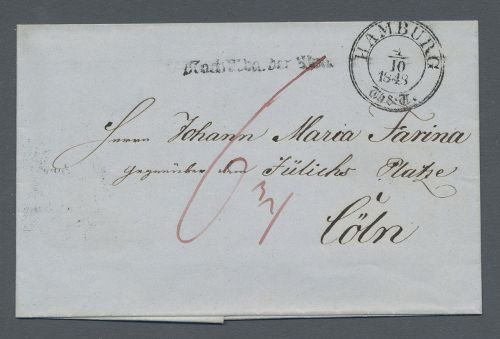 HAMBURG
10
1848
Th&T.
Herrn Johann Maria Farina
gegenüber dem Jülichs Platze
Cöln
6